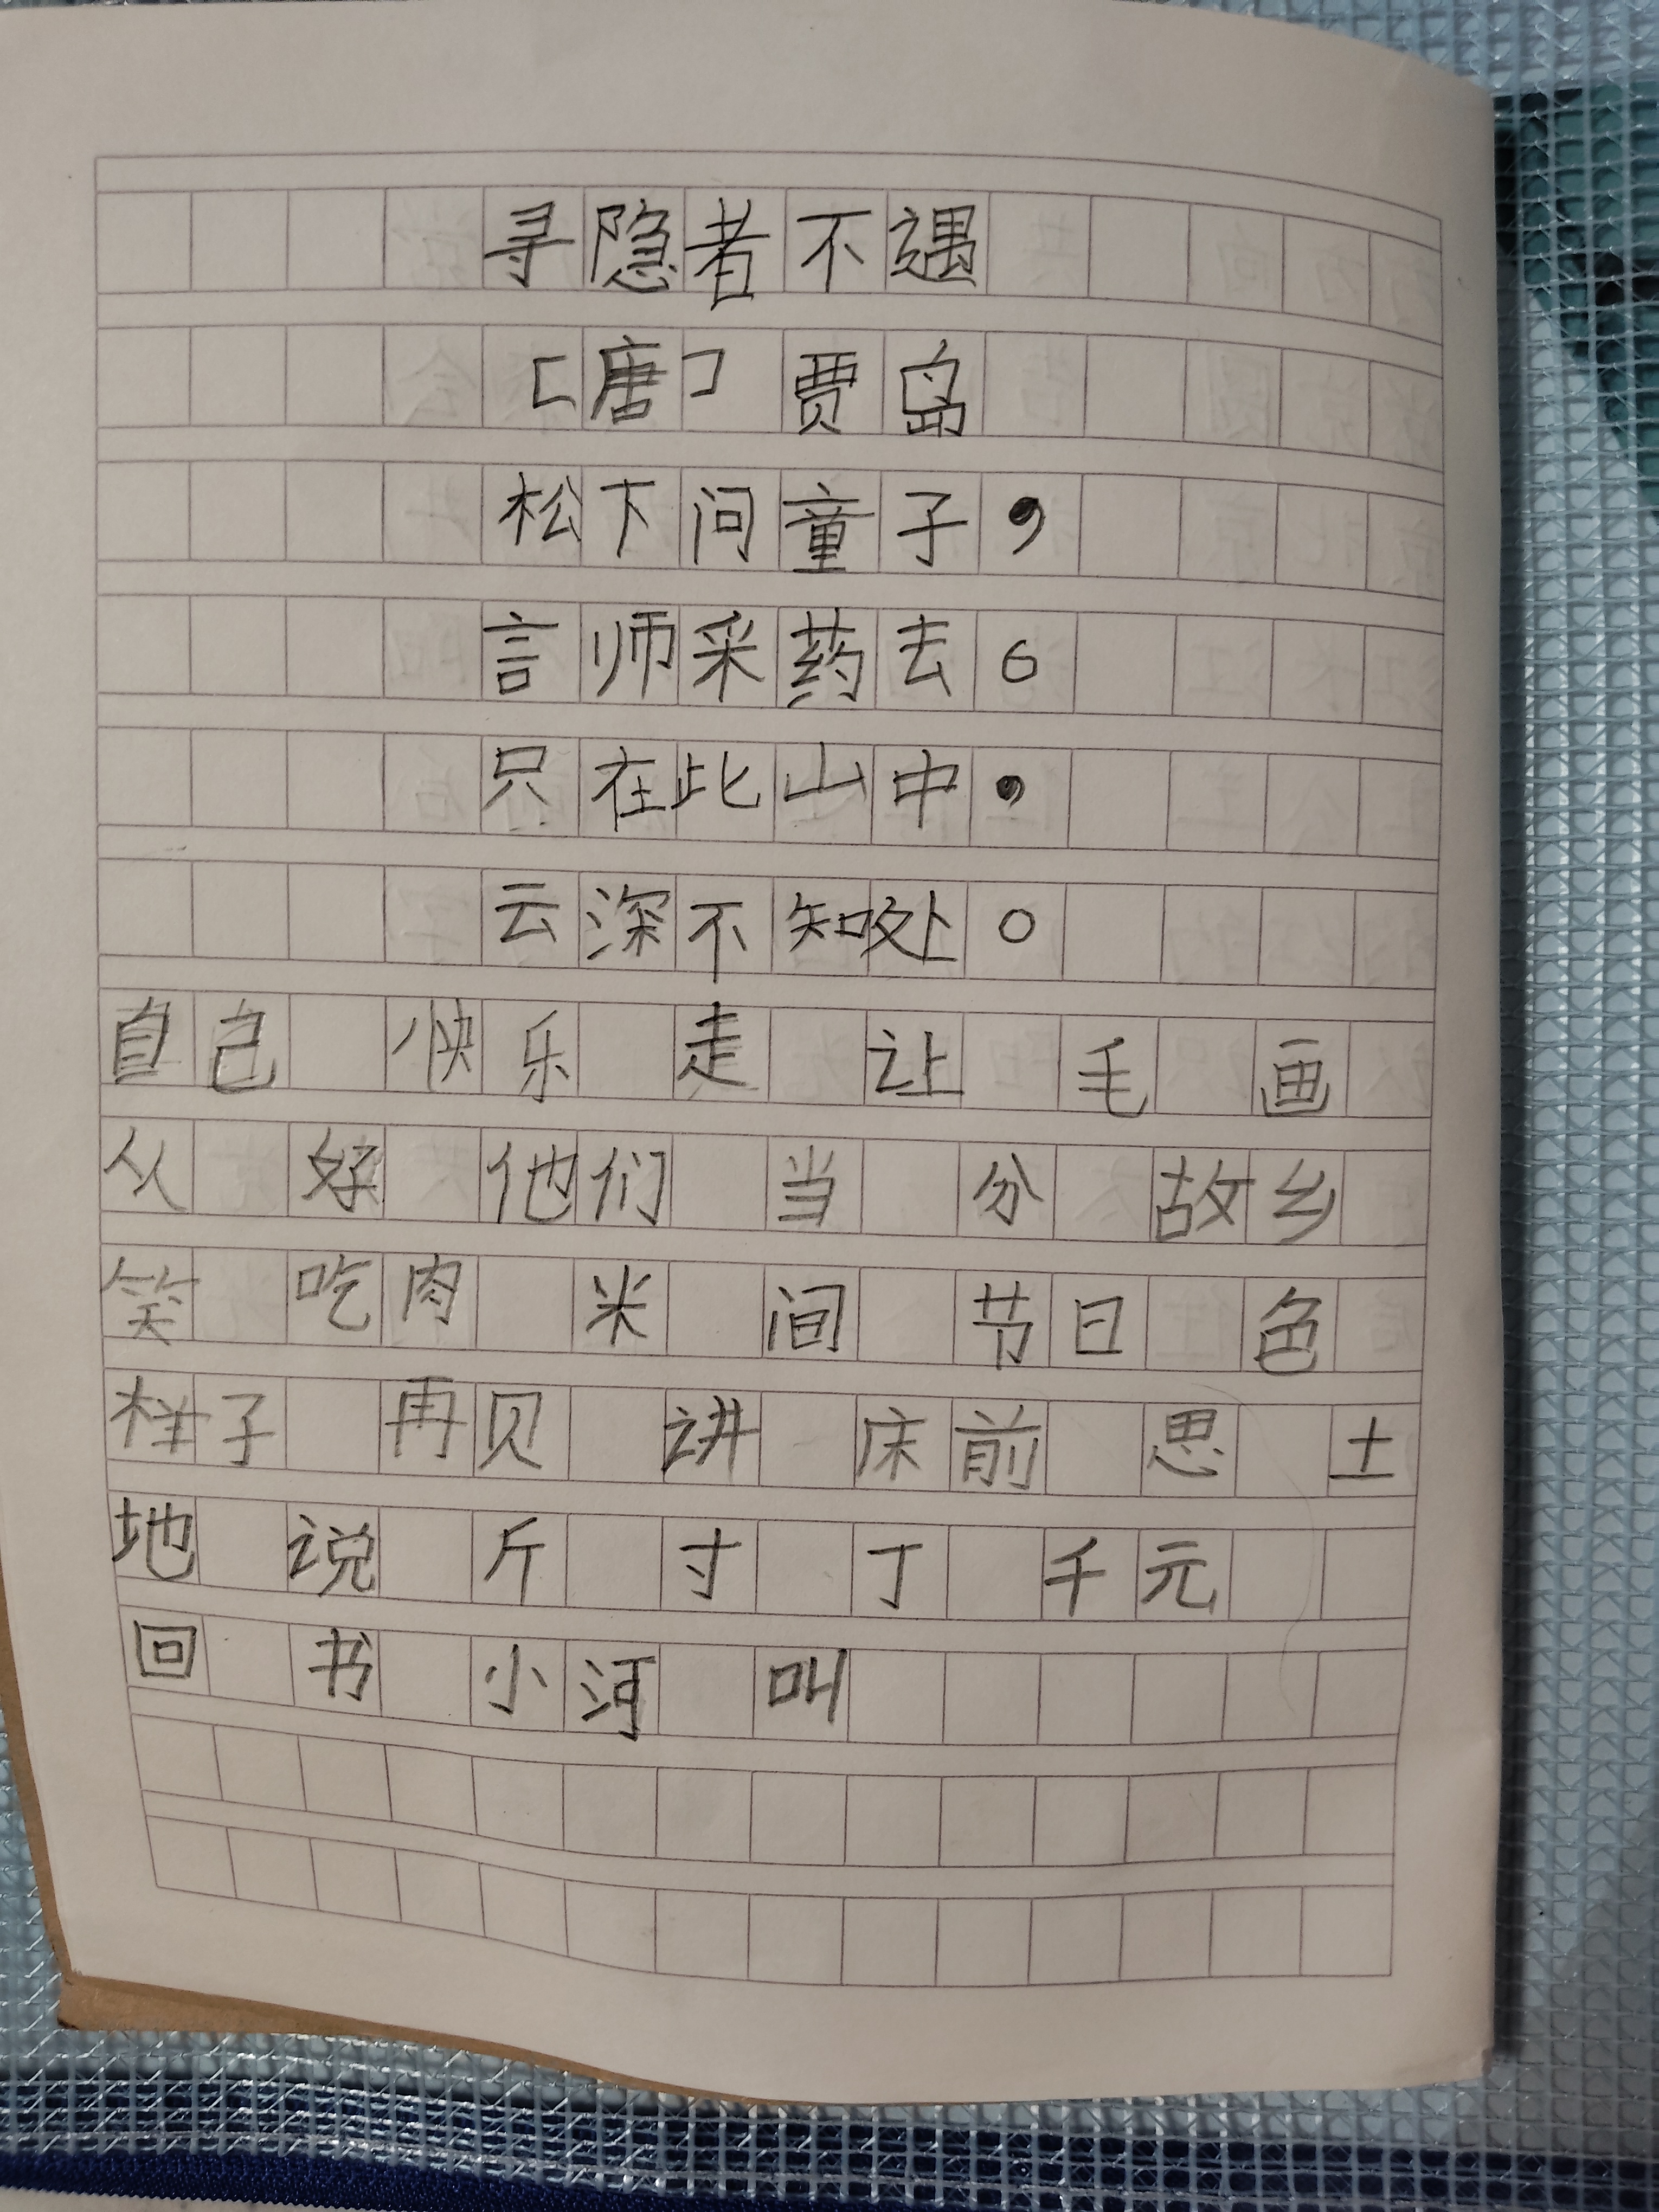 寻隐者不遇
[唐] 贾岛
松下问童子，
言师采药去。
只在此山中，
云深不知处。
自己 快乐 走 让 毛 画
从 好 他们 当 分 故乡
笑 吃肉 米 间 节日 色
样子 再见 讲 床前 思 土
地 说 斤 寸 丁 千元
回 书 小河 叫